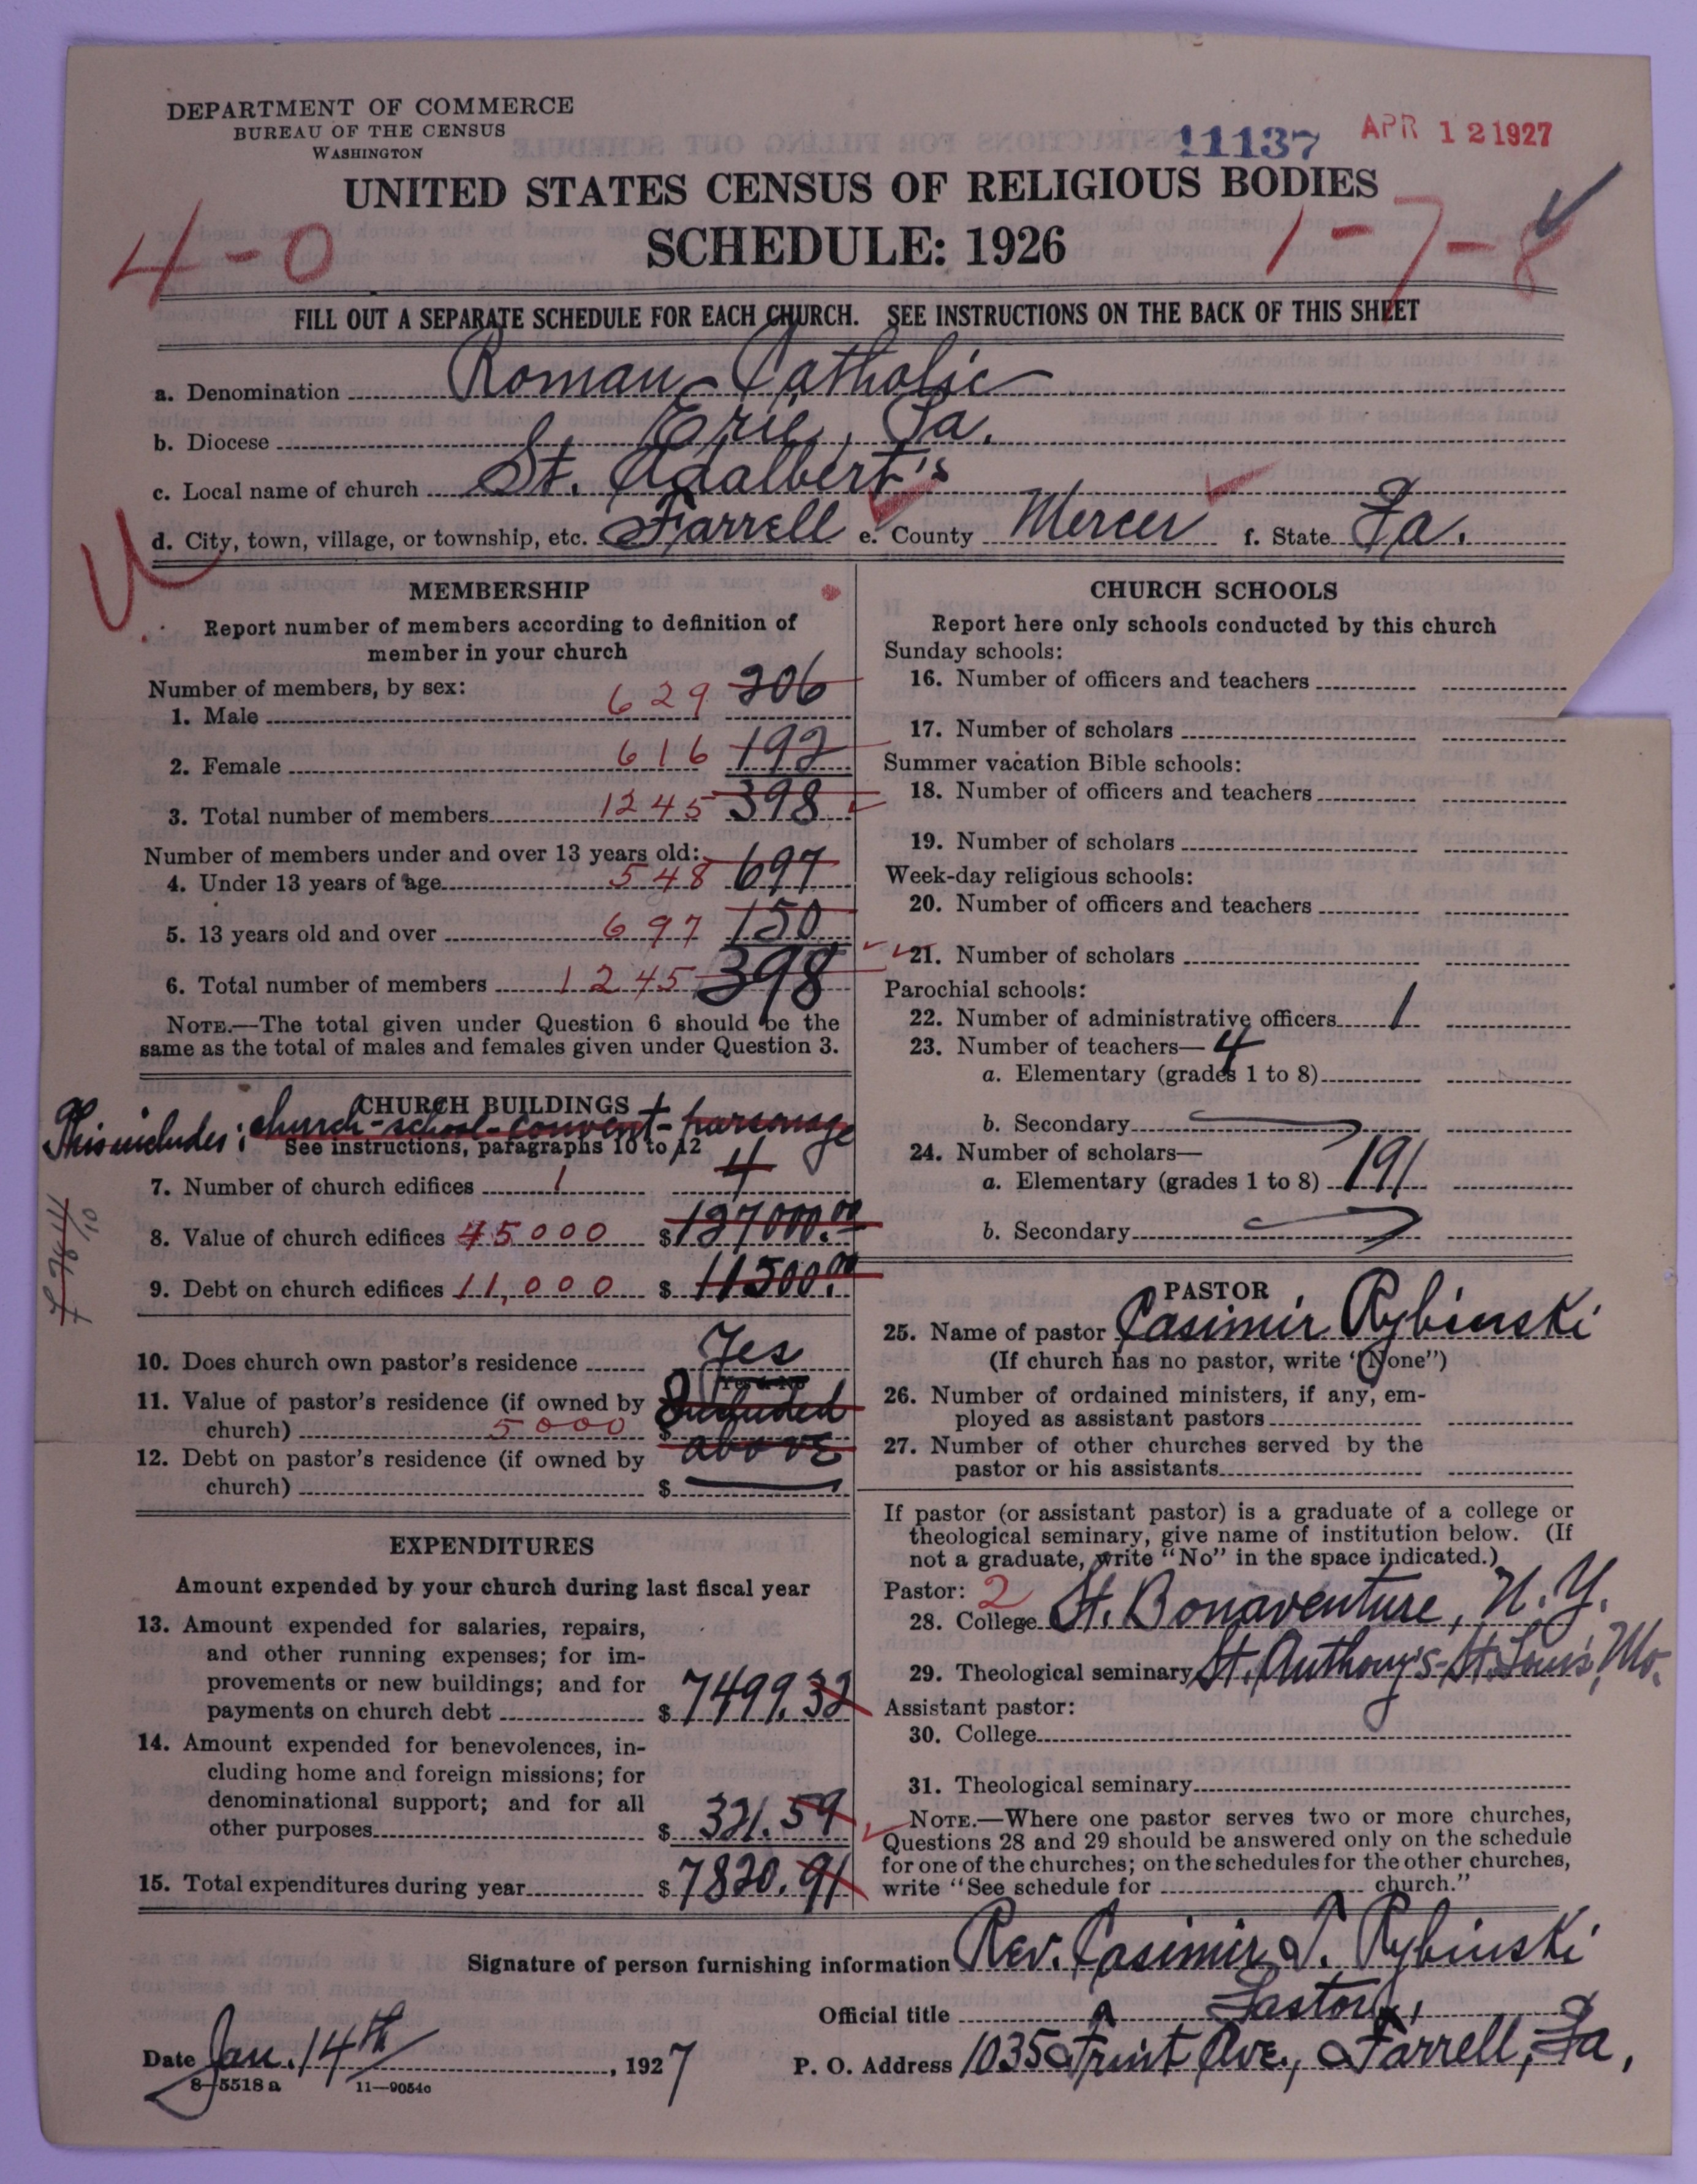 DEPARTMENT OF COMMERCE
BUREAU OF THE CENSUS
WASHINGTON
11137 APR 12 1927
UNITED STATES CENSUS OF RELIGIOUS BODIES
SCHEDULE: 1926
4-0 1-7-8
FILL OUT A SEPARATE SCHEDULE FOR EACH CHURCH. SEE INSTRUCTIONS ON THE BACK OF THIS SHEET
a. Denomination Roman-Catholic
b. Diocese Erie, Pa.
c. Local name of church St. Adalbert's
d. City, town, village, or township, etc. Farrell e. County Mercer f. State Pa.
MEMBERSHIP
Report number of members according to definition of
member in your church
Number of members, by sex:
1. Male 629 206
2. Female 616 192
3. Total number of members 1245 398
Number of members under and over 13 years old:
4. Under 13 years of age 548 697
5. 13 years old and over 697 150
6. Total number of members 1245 398
NOTE.—The total given under Question 6 should be the
same as the total of males and females given under Question 3.
CHURCH BUILDINGS
This includes: church-school-convent + parsonage
See instructions, paragraphs 10 to 12
7. Number of church edifices 1 4
8. Value of church edifices 45000 $127000.00
9. Debt on church edifices 11,000 $11500.00
10. Does church own pastor's residence Yes
11. Value of pastor's residence (if owned by
church) 5000 $ Included
above
12. Debt on pastor's residence (if owned by
church) $
EXPENDITURES
Amount expended by your church during last fiscal year
13. Amount expended for salaries, repairs,
and other running expenses; for im-
provements or new buildings; and for
payments on church debt $7499.32
14. Amount expended for benevolences, in-
cluding home and foreign missions; for
denominational support; and for all
other purposes $321.59
15. Total expenditures during year $7820.91
CHURCH SCHOOLS
Report here only schools conducted by this church
Sunday schools:
16. Number of officers and teachers
17. Number of scholars
Summer vacation Bible schools:
18. Number of officers and teachers
19. Number of scholars
Week-day religious schools:
20. Number of officers and teachers
21. Number of scholars
Parochial schools:
22. Number of administrative officers 1
23. Number of teachers— 4
a. Elementary (grades 1 to 8)
b. Secondary
24. Number of scholars—
a. Elementary (grades 1 to 8) 191
b. Secondary
PASTOR
25. Name of pastor Casimir Rybinski
(If church has no pastor, write "None")
26. Number of ordained ministers, if any, em-
ployed as assistant pastors
27. Number of other churches served by the
pastor or his assistants
If pastor (or assistant pastor) is a graduate of a college or
theological seminary, give name of institution below. (If
not a graduate, write "No" in the space indicated.)
Pastor: 2
28. College St. Bonaventure, N.Y.
29. Theological seminary St. Anthony's-St. Louis, Mo.
Assistant pastor:
30. College
31. Theological seminary
NOTE.—Where one pastor serves two or more churches,
Questions 28 and 29 should be answered only on the schedule
for one of the churches; on the schedules for the other churches,
write "See schedule for church."
Signature of person furnishing information Rev. Casimir J. Rybinski
Official title Pastor
Date Jan. 14th, 1927 P. O. Address 1035 Fruit Ave., Farrell, Pa,
8-5518a 11-9054c